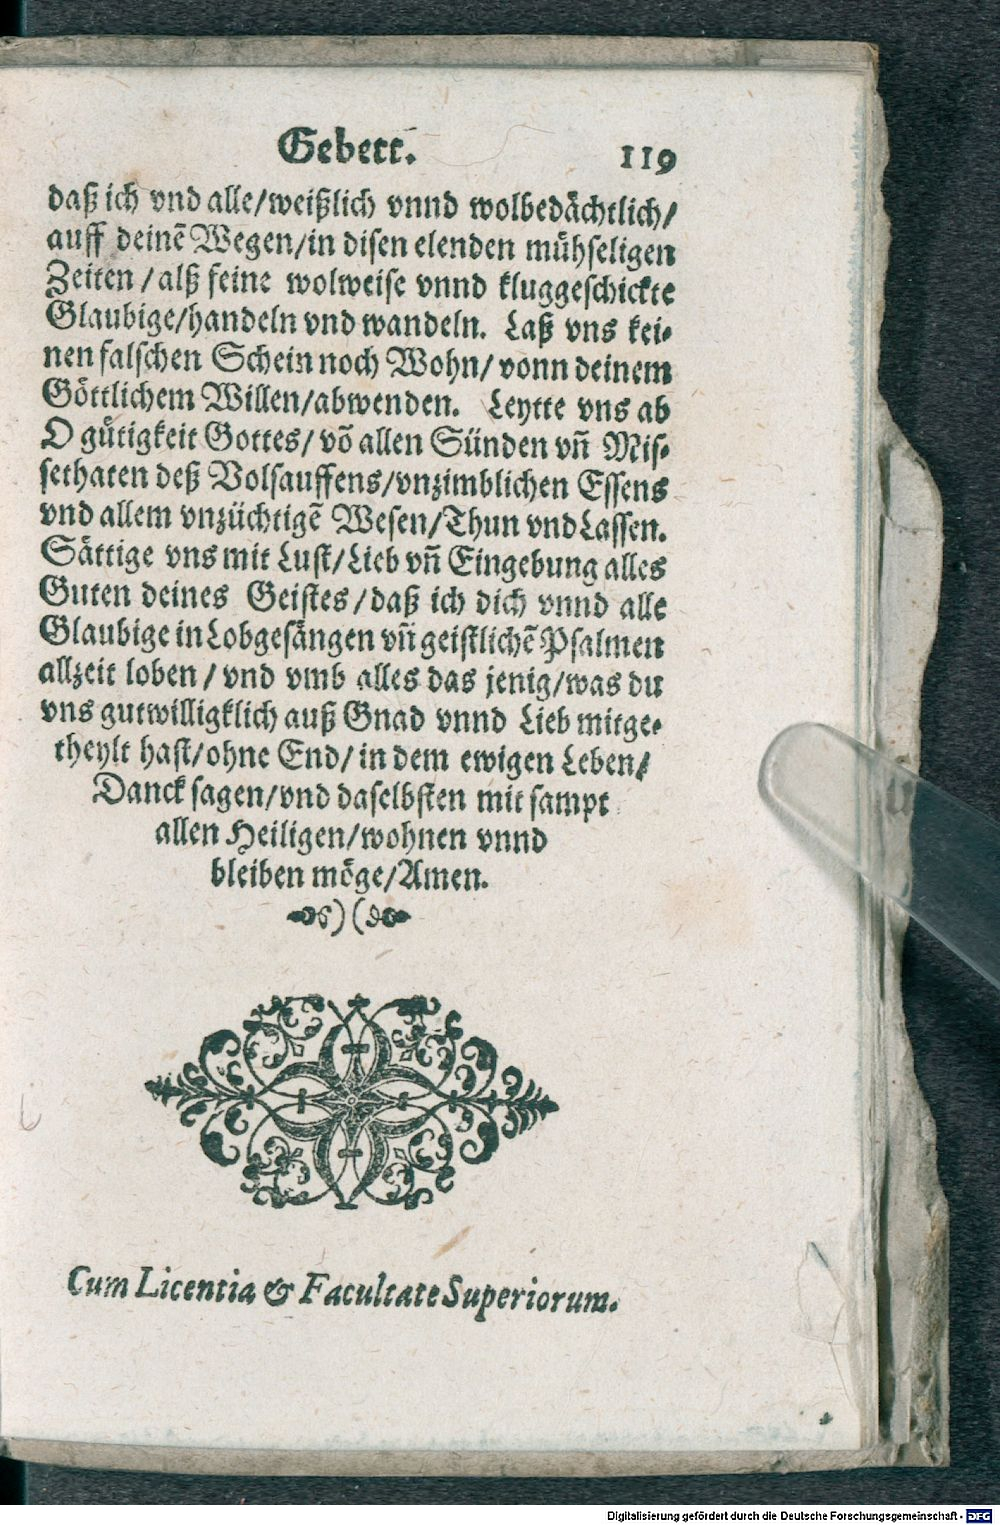 Gebett. 119
daß ich vnd alle/weißlich vnnd wolbedächtlich/
auff deinẽ Wegen/in disen elenden mühseligen
Zeiten/alß feine wolweise vnnd kluggeschickte
Glaubige/handeln vnd wandeln. Laß vns kei-
nen falschen Schein noch Wohn/vonn deinem
Göttlichem Willen/abwenden. Leytte vns ab
O gütigkeit Gottes/võ allen Sünden vñ Mis-
sethaten deß Volsauffens/vnzimblichen Essens
vnd allem vnzüchtigẽ Wesen/Thun vnd Lassen.
Sättige vns mit Lust/Lieb vñ Eingebung alles
Guten deines Geistes/daß ich dich vnnd alle
Glaubige in Lobgesängen vñ geistlichẽ Psalmen
allzeit loben/vnd vmb alles das jenig/was du
vns gutwilligklich auß Gnad vnnd Lieb mitge-
theylt hast/ohne End/in dem ewigen Leben/
Danck sagen/vnd daselbsten mit sampt
allen Heiligen/wohnen vnnd
bleiben möge/Amen.
Cum Licentia & Facultate Superiorum.
Digitalisierung gefördert durch die Deutsche Forschungsgemeinschaft - DFG